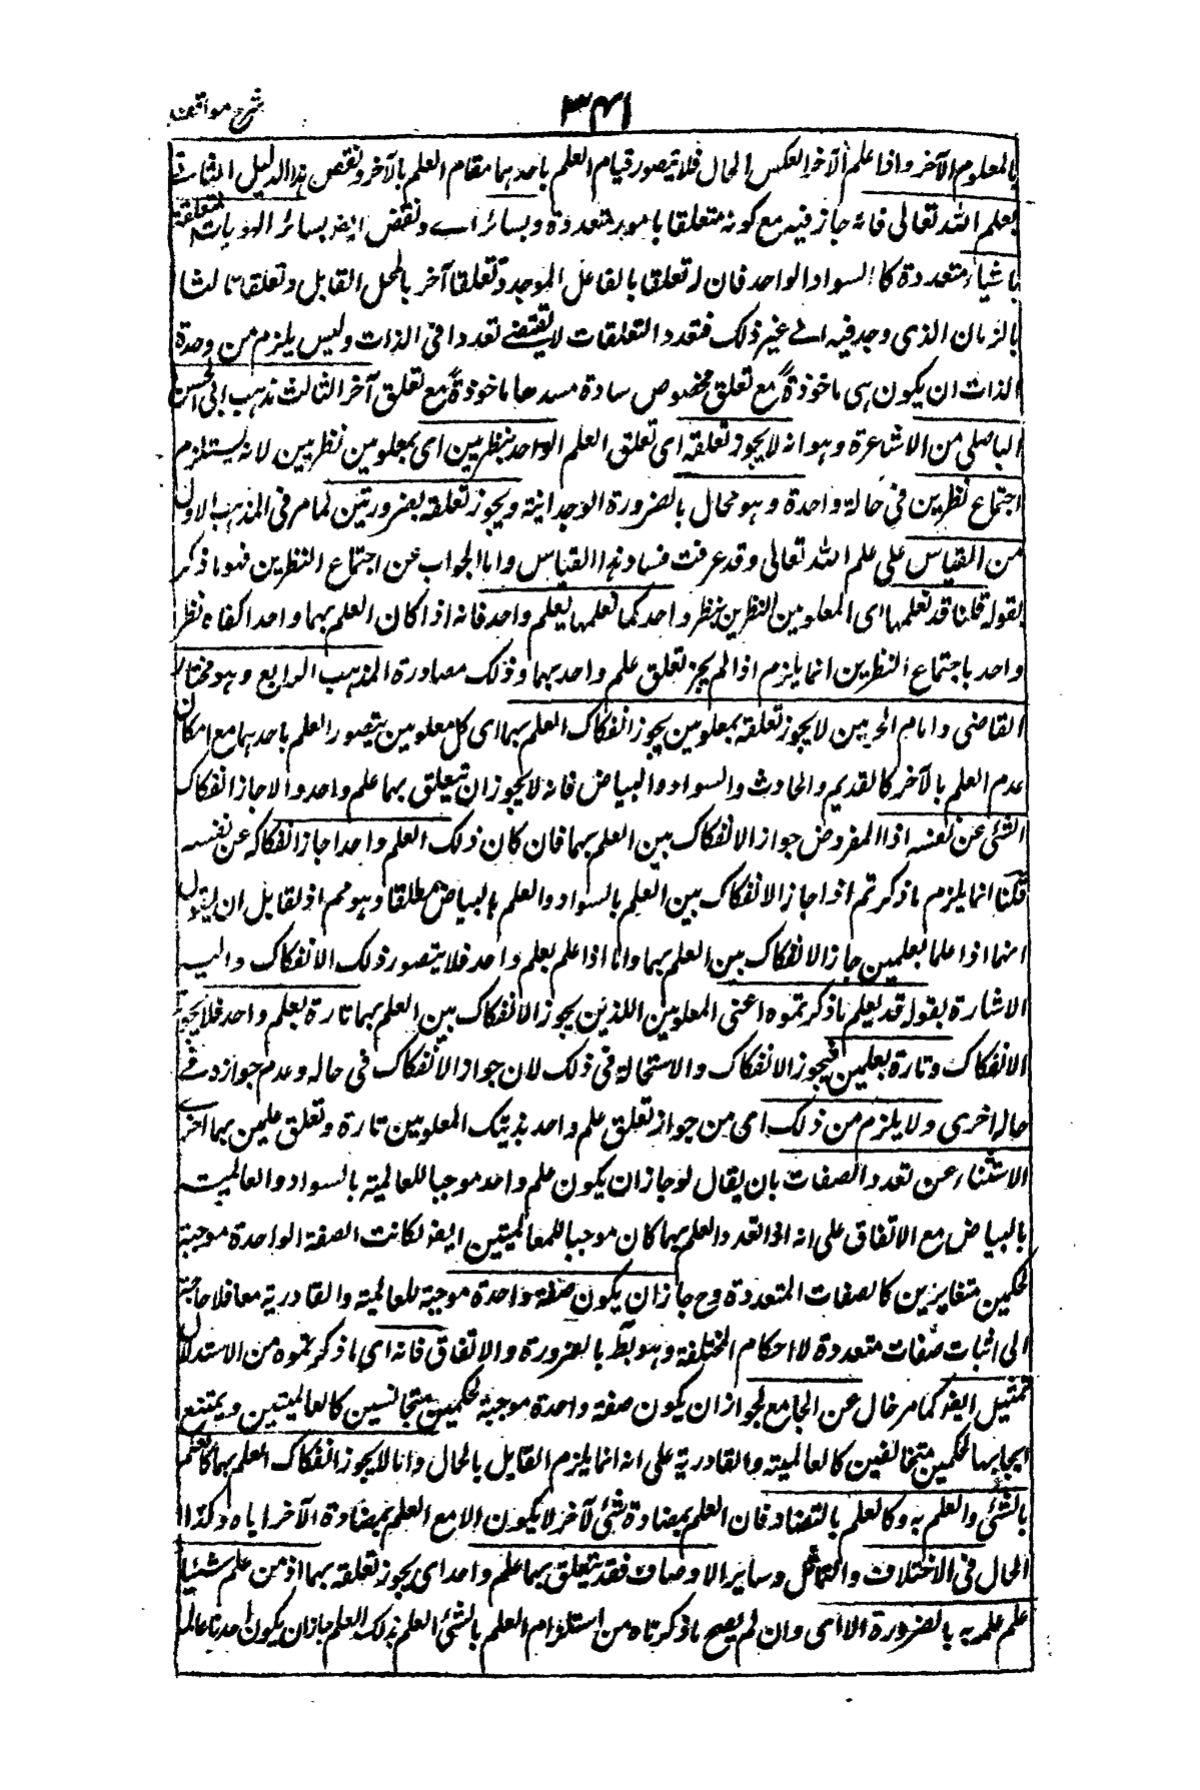 شرح مواقف
٣٤١
بالمعلوم الآخر واذا علم الآخر انعكس الحال فلا يتصور قيام العلم باحدهما مقام العلم بالآخر ونقض هذا الدليل الثالث
بعلم الله تعالى فانه جاز فيه مع كونه متعلقا بامور متعددة وبسائر اے ونقض ايضا بسائر الهويات المتعلقة
باشياء متعددة كالسواد الواحد فان له تعلقا بالفاعل الموجد وتعلقا آخر بالمحل القابل وتعلقا ثالثا
بالزمان الذى وجد فيه الى غير ذلك فتعدد التعلقات لا يقتضے تعددا فى الذات وليس يلزم من وحدة
الذات ان يكون هى ماخوذة مع تعلق مخصوص سادة مسدها ماخوذة مع تعلق آخر الثالث مذهب ابى الحسن
الباهلى من الاشاعرة وهو انه لا يجوز تعلقه اى تعلق العلم الواحد بنظريين اى بمعلومين نظريين لانه يستلزم
اجتماع نظرين فى حالة واحدة وهو محال بالضرورة الوجدانية ويجوز تعلقه بضروريتين لما مر فى المذهب الاول
من القياس على علم الله تعالى وقد عرفت فساد هذا القياس واما الجواب عن اجتماع النظرين فهو ما ذكر
بقوله قلنا قد نعلمها اى المعلومين النظرين بنظر واحد كما نعلمها بعلم واحد فانه اذا كان العلم بهما واحدا كفاه نظر
واحد باجتماع النظرين انما يلزم اذا لم يجز تعلق علم واحد بهما وذلك مصادرة المذهب الرابع وهو مختار
القاضى وامام الحرمين لا يجوز تعلقه بمعلومين يجوز انفكاك العلم بهما اى كل معلومين يتصور العلم باحدهما مع امكان
عدم العلم بالآخر كالقديم والحادث والسواد والبياض فانه لا يجوز ان يتعلق بهما علم واحد والا جاز انفكاك
الشئ عن نفسه اذ المفروض جواز الانفكاك بين العلم بهما فان كان ذلك العلم واحدا جاز انفكاكه عن نفسه
قلنا انما يلزم ما ذكرتم اذا جاز الانفكاك بين العلم بالسواد والعلم بالبياض مطلقا وهو مم اذ لقابل ان يقول
انهما اذا علما بعلمين جاز الانفكاك بين العلم بهما واما اذا علم بعلم واحد فلا يتصور ذلك الانفكاك واليه
الاشارة بقوله قد يعلم ما ذكرتموه اعنى المعلومين اللذين يجوز الانفكاك بين العلم بهما تارة بعلم واحد فلا يجوز
الانفكاك وتارة بعلمين فيجوز الانفكاك والاستحالة فى ذلك لان جواز الانفكاك فى حاله وعدم جوازه فے
حالة اخرى ولا يلزم من ذلك اى من جواز تعلق علم واحد بذينك المعلومين تارة وتعلق علمين بهما اخرى
الاستثناء عن تعدد الصفات بان يقال لو جاز ان يكون علم واحد موجبا للعالمية بالسواد والعالمية
بالبياض مع الاتفاق على انه اذا تعدد العلم بهما كان موجبا للعالميتين ايضا لكانت الصفة الواحدة موجبة
لحكمين متغايرين كالصفات المتعددة وح جاز ان يكون صفة واحدة موجبة للعالمية والقادرية معا فلا حاجة
الى اثبات صفات متعددة لاحكام المختلفة وهو بط بالضرورة والاتفاق فانه اى ما ذكرتموه من الاستدلال
تمثيل ايضا كما مر خال عن الجامع لجواز ان يكون صفة واحدة موجبة لحكمين متجانسين كالعالميتين ويمتنع
ايجابها لحكمين متخالفين كالعالمية والقادرية على انه انما يلزم القابل بالحال واما لا يجوز انفكاك العلم بهما كالعلم
بالشئ والعلم به وكالعلم بالتضاد فان العلم بمضادة شئ لآخر لا يكون الا مع العلم بمضادة الآخر اياه وكذا
الحال فى الاختلاف والتماثل وسائر الاوصاف فقد يتعلق بهما علم واحد اى يجوز تعلقه بهما اذ من علم شيئا
علم علمه به بالضرورة الا اى وان لم يصح ما ذكرناه من استلزام العلم بالشئ العلم بذلك العلم جاز ان يكون احدنا عالما